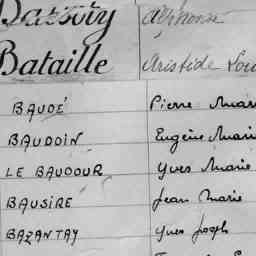 Barsoty Alphonse
Bataille Aristide Lou
BAUDÉ Pierre Marie
BAUDOIN Eugène Marie
LE BAUDOUR Yves Marie
BAUSIRE Jean Marie
BAZANTAY Yves Joseph